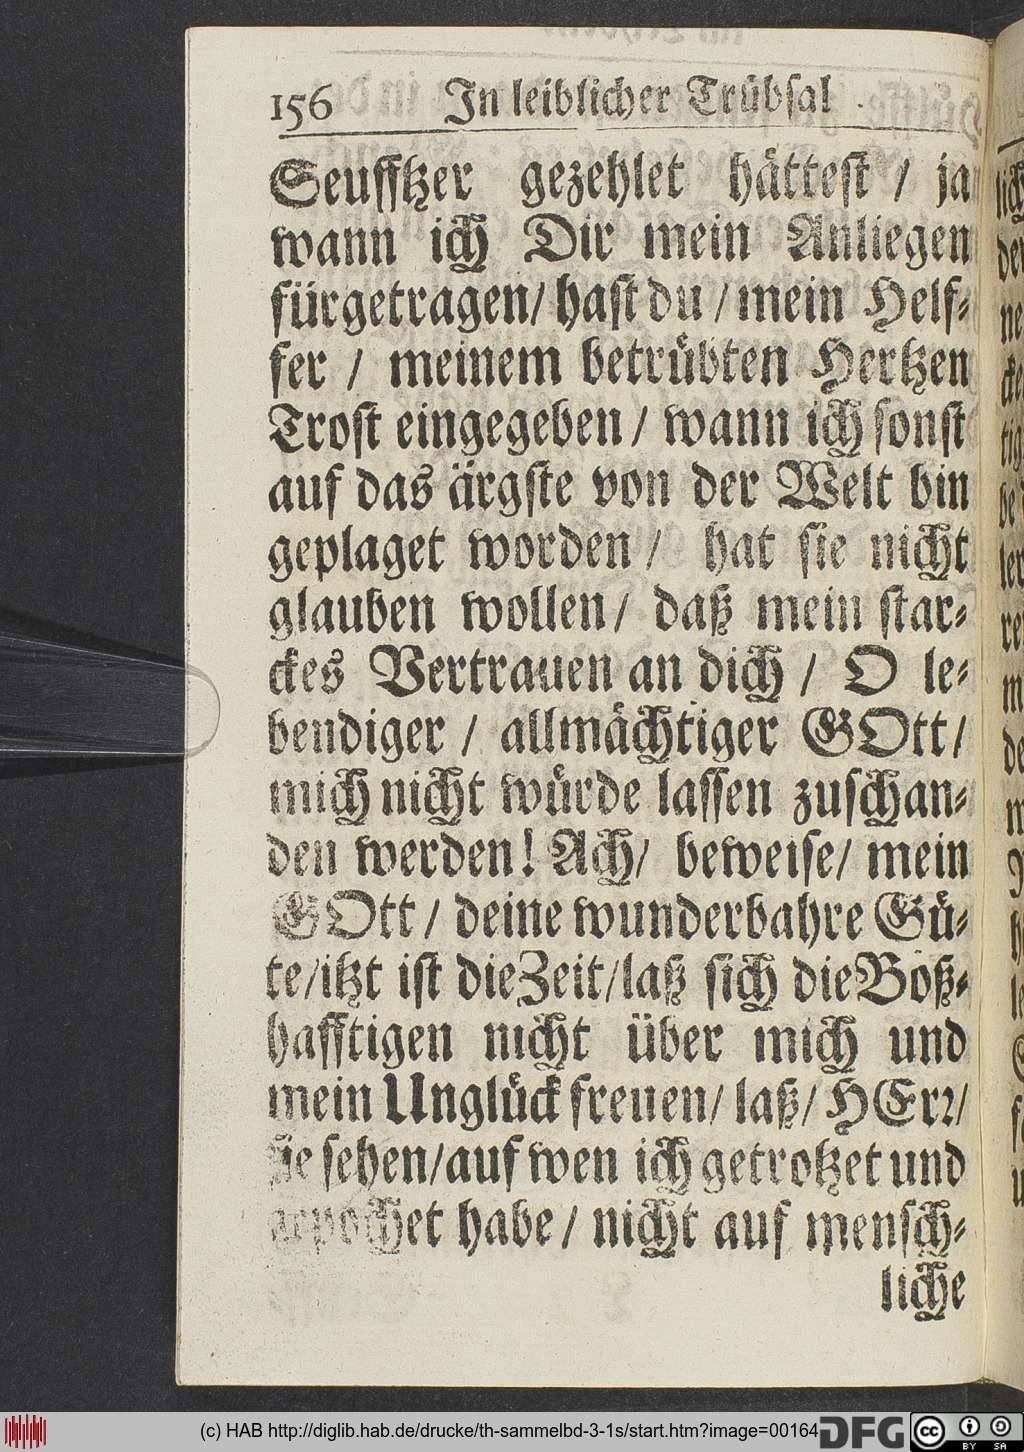 156 In leiblicher Trübsal
Seufftzer gezehlet hättest / ja
wann ich Dir mein Anliegen
fürgetragen/ hast du / mein Helf-
fer / meinem betrübten Hertzen
Trost eingegeben / wann ich sonst
auf das ärgste von der Welt bin
geplaget worden / hat sie nicht
glauben wollen / daß mein star-
ckes Vertrauen an dich / O le-
bendiger / allmächtiger GOtt /
mich nicht würde lassen zuschan-
den werden! Ach/ beweise/ mein
GOtt / deine wunderbahre Gü-
te/itzt ist die Zeit/laß sich die Boß-
hafftigen nicht über mich und
mein Unglück freuen/ laß/ HErr/
sie sehen/auf wen ich getrotzet und
gepochet habe / nicht auf mensch-
liche
(c) HAB http://diglib.hab.de/drucke/th-sammelbd-3-1s/start.htm?image=00164
DFG
cc BY SA